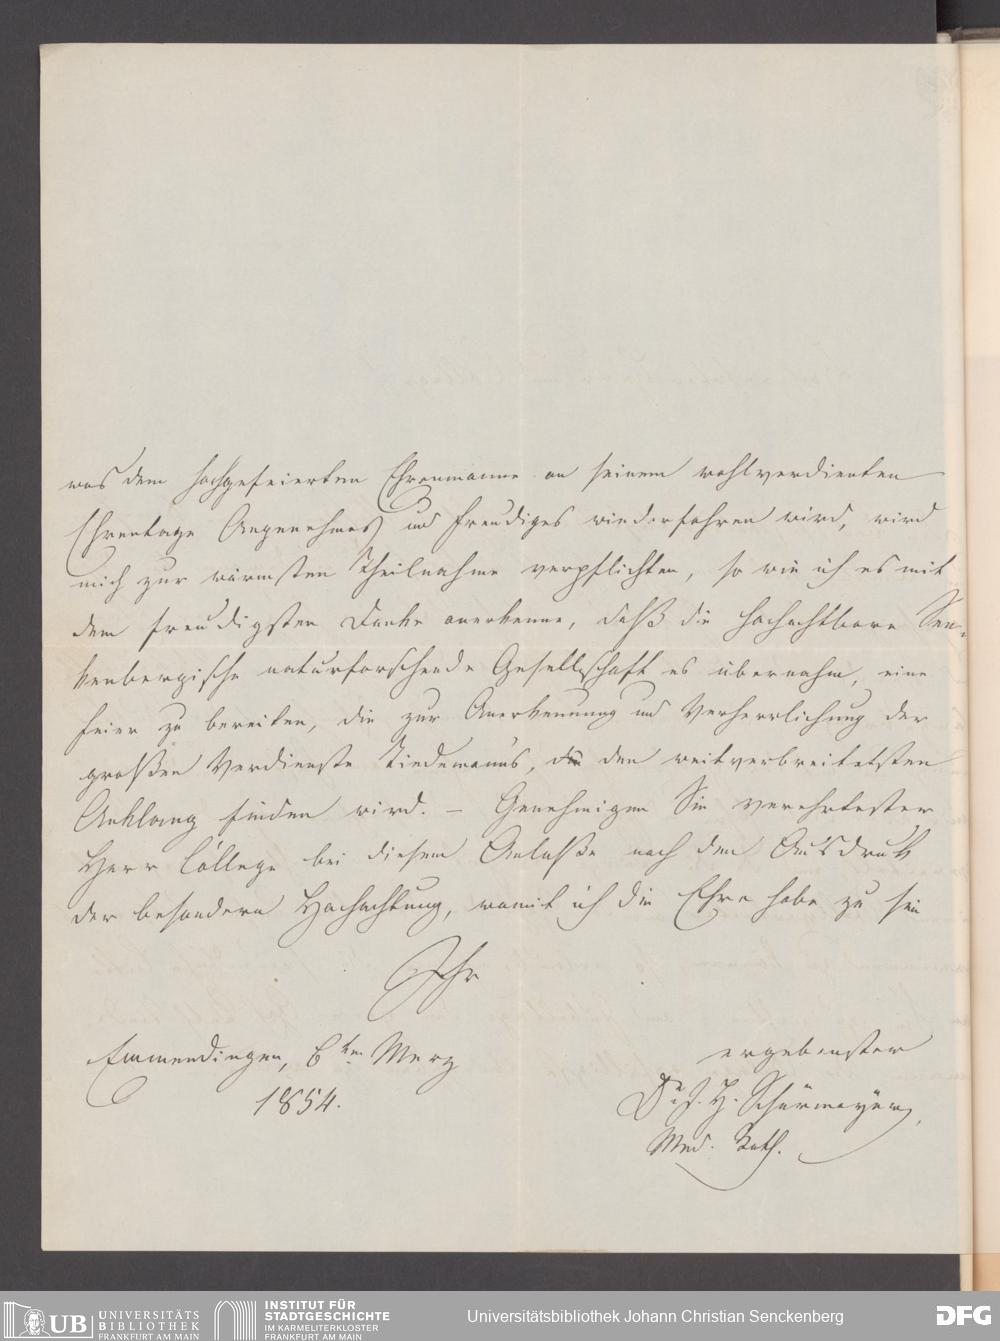 was dem hochgefeierten Ehrenmanne an seinem wohlverdienten
Ehrentage Angenehmes und freudiges wiederfahren wird, wird
mich zur wärmsten Theilnahme verpflichten, so wie ich es mit
dem freudigsten Danke anerkenne, daß die hochachtbare Sen-
kenbergische naturforschende Gesellschaft es übernahm, eine
Feier zu bereiten, die zur Anerkennung und Verherrlichung der
großen Verdienste Tiedemanns, den weitverbreitetsten
Anklang finden wird. – Genehmigen Sie verehrtester
Herr College bei diesem Anlaße noch den Ausdruk
der besondern Hochachtung, womit ich die Ehre habe zu sein
Ihr
Emmendingen, 6ten Merz
1854.
ergebenster
Dr. J. H. Schürmayer,
Med. Rath.
UB UNIVERSITÄTS
BIBLIOTHEK
FRANKFURT AM MAIN
INSTITUT FÜR
STADTGESCHICHTE
IM KARMELITERKLOSTER
FRANKFURT AM MAIN
Universitätsbibliothek Johann Christian Senckenberg
DFG